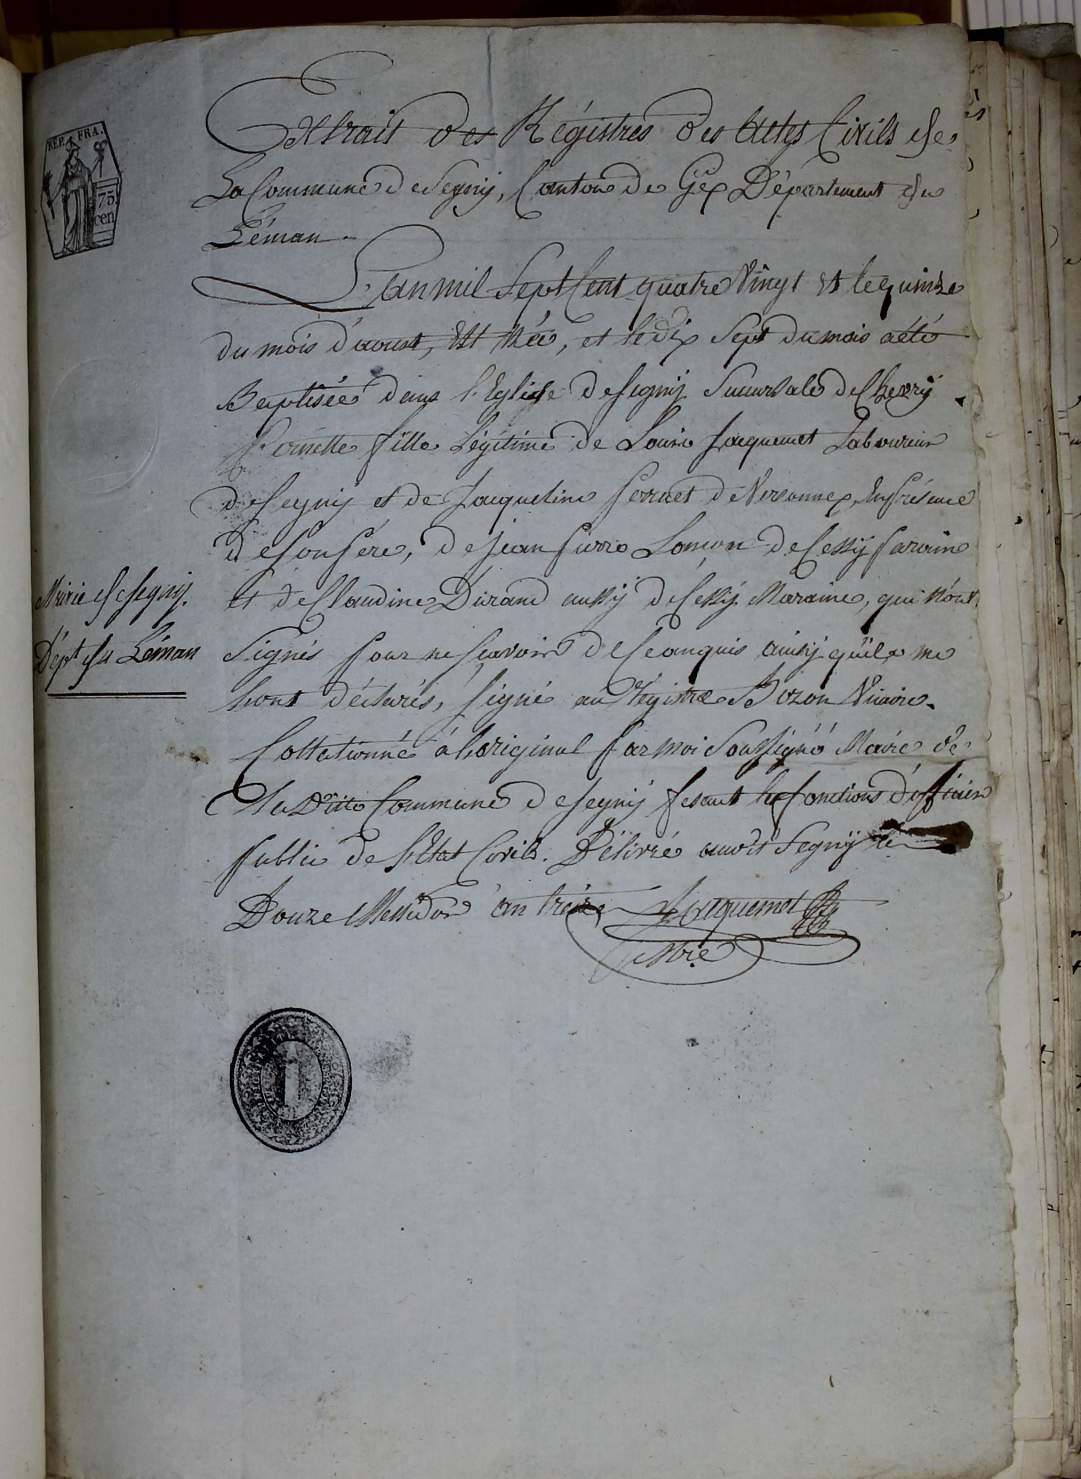 REP. FRA.
75
cen
Extrait des Régistres des Actes Civils de
La Commune de Segnÿ, Canton de Gex Département du
Léman.
L'an mil Sept Cent quatre Vingt et le quinze
du mois d'aoust, Est Née, et le dix Sept du mois a été
Baptisée dans l'Eglise de Segnÿ Sucursale de Chevrÿ
Pernette fille Légitime de Louis Jacquemet Laboureur
de Segnÿ et de Jaqueline perruet de Versonnex, En présence
de Son père, de Jean pierre Lomon de Cessÿ paroine
et de Claudine Durand aussÿ de Cessÿ Maraine, qui N'ont
Mairie de Segnÿ.
Dépt du Léman
Signés pour ne Scavoir de Ce anquis ainsÿ qu'ils me
L'ont déclarés, Signé au Régistre Bozon Vicaire.
Collationné à L'original par moi Soussigné Maire de
La Ditte Commune de Segnÿ fesant les fonctions d'officier
public de l'Etat Civils. Délivré audit Segnÿ le
Douze Messidor an treize Jacquemet